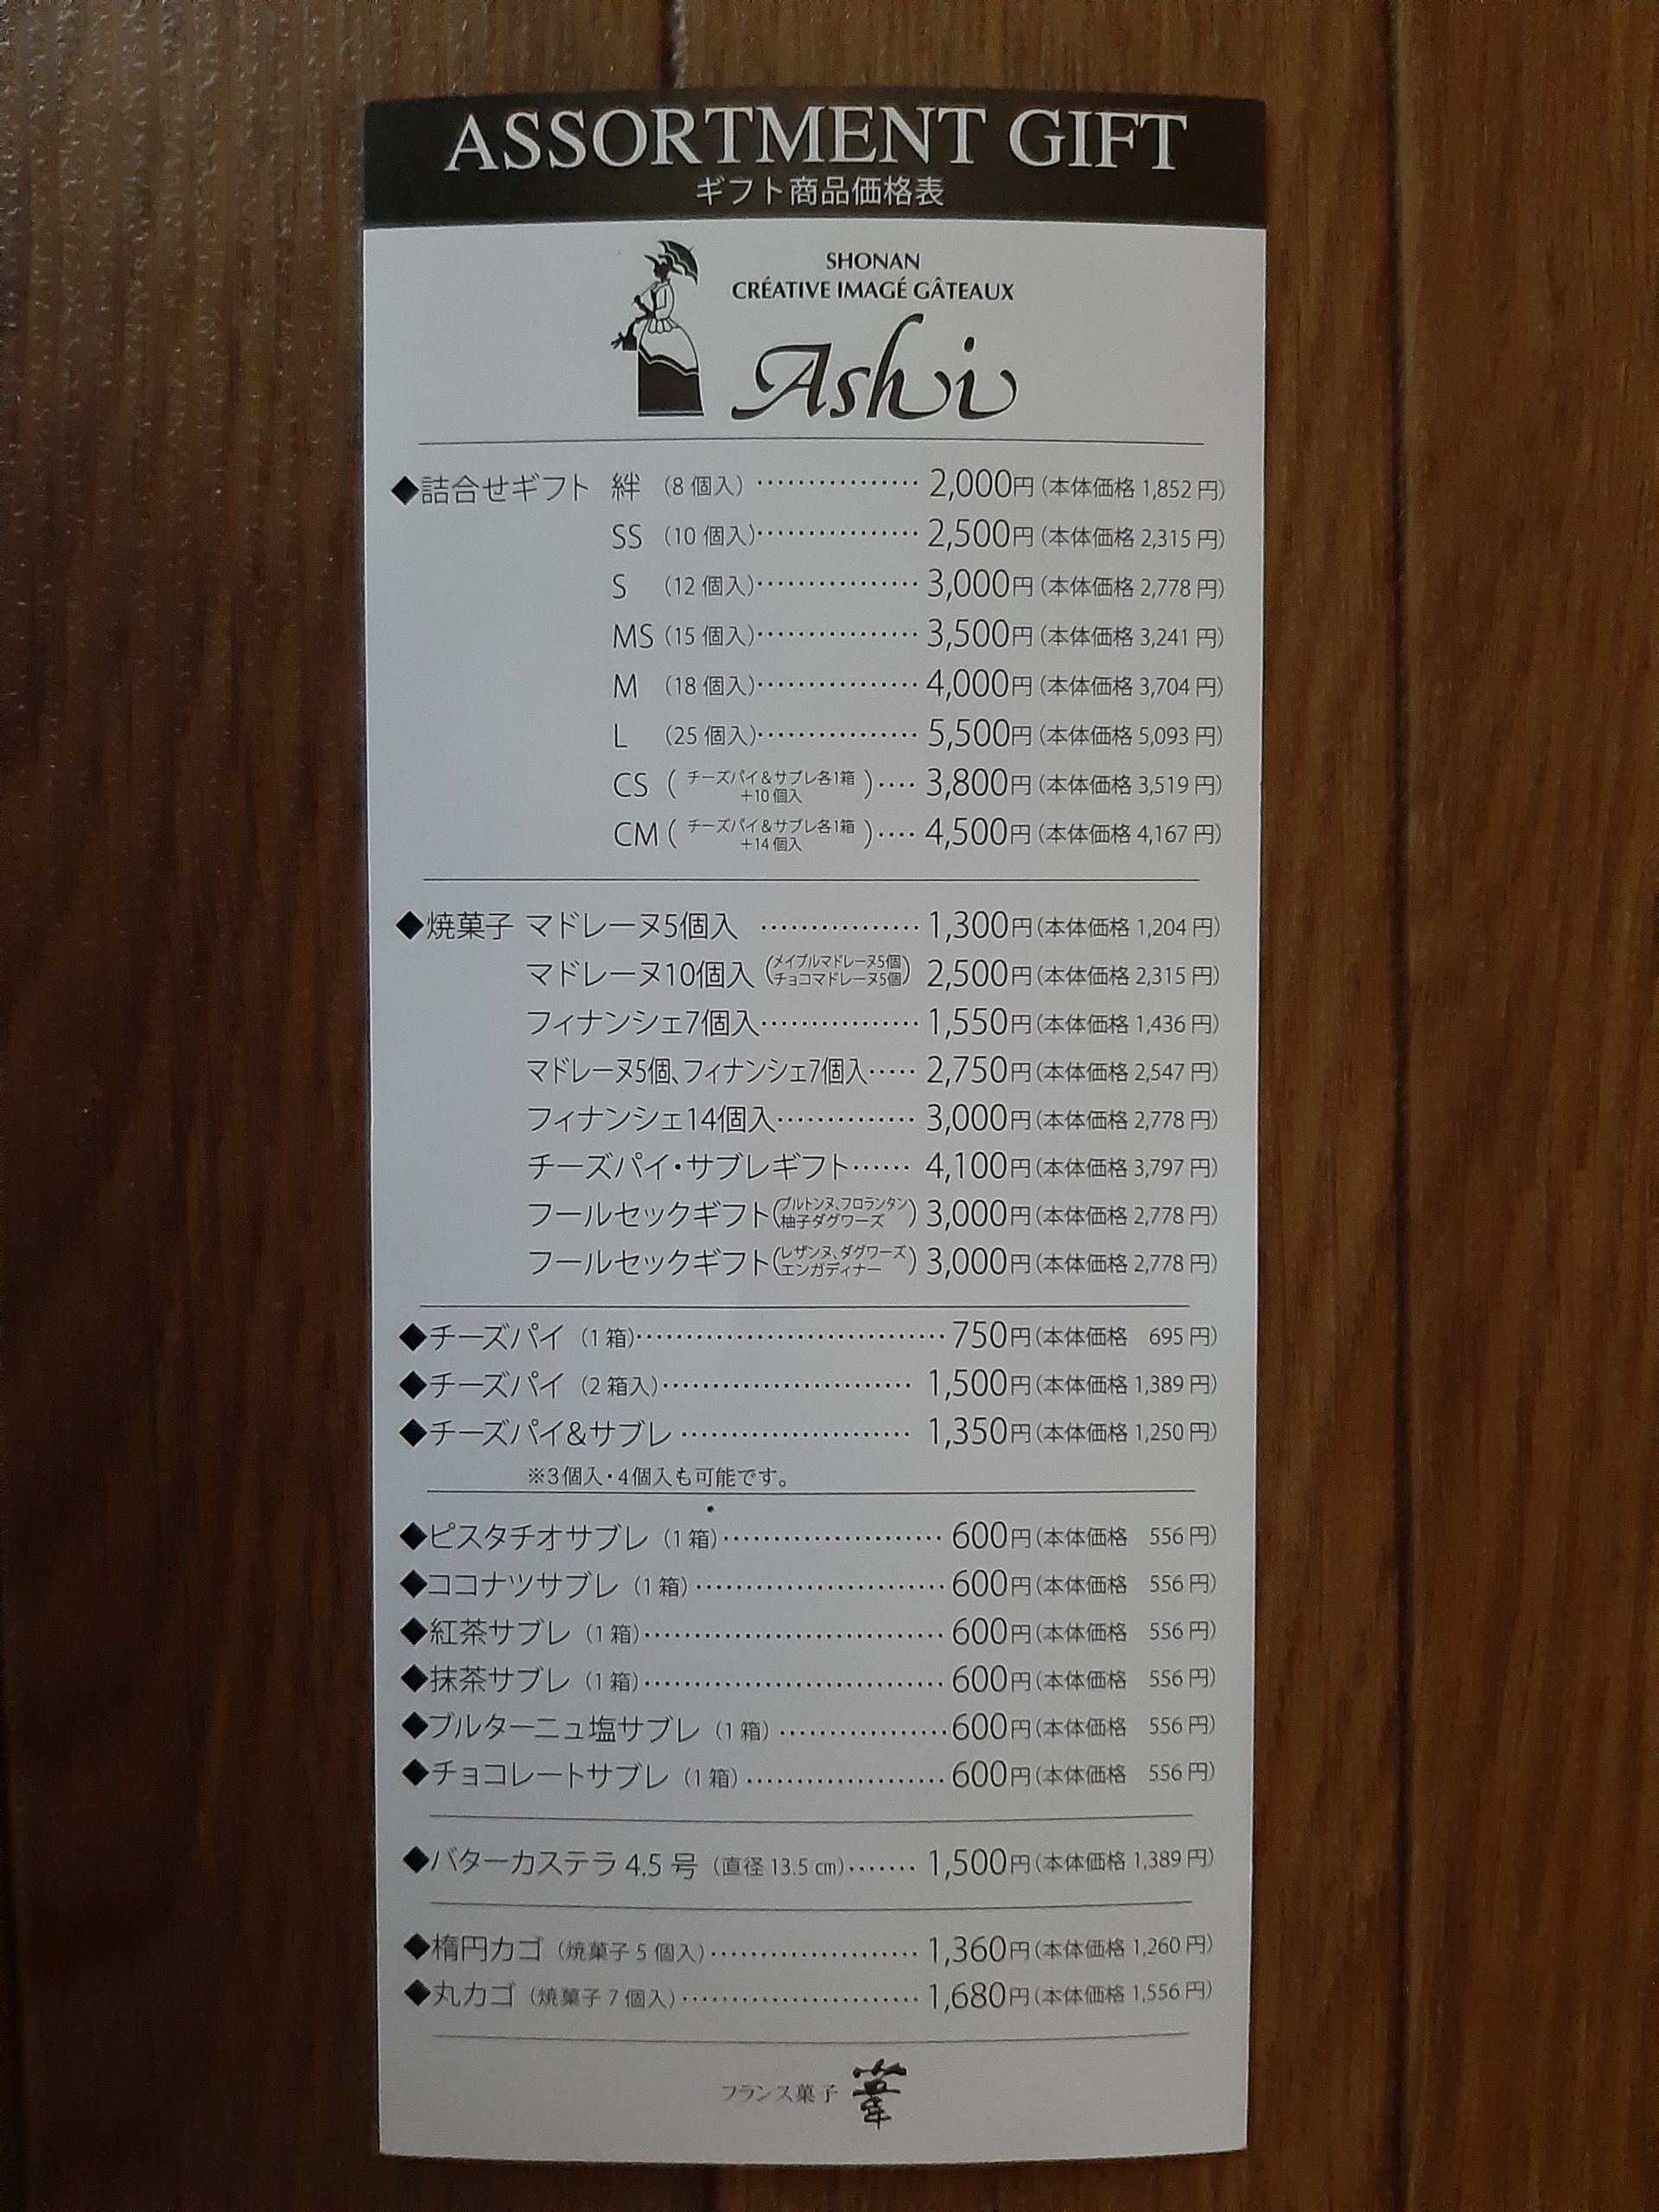 ASSORTMENT GIFT
ギフト商品価格表
SHONAN
CRÉATIVE IMAGÉ GÂTEAUX
Ashi
◆詰合せギフト 絆 (8個入)················2,000円(本体価格1,852円)
SS (10個入)················2,500円(本体価格2,315円)
S (12個入)················3,000円(本体価格2,778円)
MS (15個入)················3,500円(本体価格3,241円)
M (18個入)················4,000円(本体価格3,704円)
L (25個入)················5,500円(本体価格5,093円)
CS (チーズパイ&サブレ各1箱+10個入)····3,800円(本体価格3,519円)
CM (チーズパイ&サブレ各1箱+14個入)····4,500円(本体価格4,167円)
◆焼菓子 マドレーヌ5個入 ················1,300円(本体価格1,204円)
マドレーヌ10個入(メイプルマドレーヌ5個 チョコマドレーヌ5個) 2,500円(本体価格2,315円)
フィナンシェ7個入················1,550円(本体価格1,436円)
マドレーヌ5個、フィナンシェ7個入·····2,750円(本体価格2,547円)
フィナンシェ14個入··············3,000円(本体価格2,778円)
チーズパイ・サブレギフト······4,100円(本体価格3,797円)
フールセックギフト(ブルトンヌ、フロランタン 柚子ダグワーズ) 3,000円(本体価格2,778円)
フールセックギフト(レザンヌ、ダグワーズ エンガディナー) 3,000円(本体価格2,778円)
◆チーズパイ (1箱)·······························750円(本体価格 695円)
◆チーズパイ (2箱入)·························1,500円(本体価格1,389円)
◆チーズパイ&サブレ ·······················1,350円(本体価格1,250円)
※3個入・4個入も可能です。
◆ピスタチオサブレ (1箱)······················600円(本体価格 556円)
◆ココナツサブレ (1箱)·························600円(本体価格 556円)
◆紅茶サブレ (1箱)······························600円(本体価格 556円)
◆抹茶サブレ (1箱)······························600円(本体価格 556円)
◆ブルターニュ塩サブレ (1箱) ·················600円(本体価格 556円)
◆チョコレートサブレ (1箱)····················600円(本体価格 556円)
◆バターカステラ 4.5号 (直径13.5㎝)·······1,500円(本体価格1,389円)
◆楕円カゴ (焼菓子5個入)·····················1,360円(本体価格1,260円)
◆丸カゴ (焼菓子7個入)························1,680円(本体価格1,556円)
フランス菓子 葦